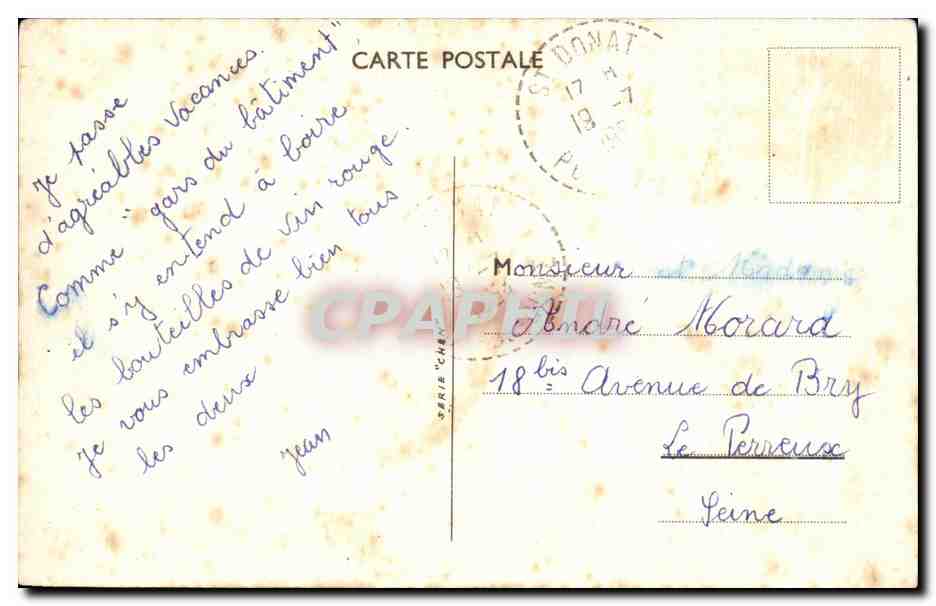 CARTE POSTALE
Je passe
d'agréables vacances.
Comme "gars du bâtiment"
il s'y entend à boire
les bouteilles de vin rouge.
Je vous embrasse bien tous
les deux
Jean
ST DONAT
17 H
19 -7
SERIE "CHEN
CPAPHIL
Monsieur et Madame
André Morard
18 bis Avenue de Bry
Le Perreux
Seine